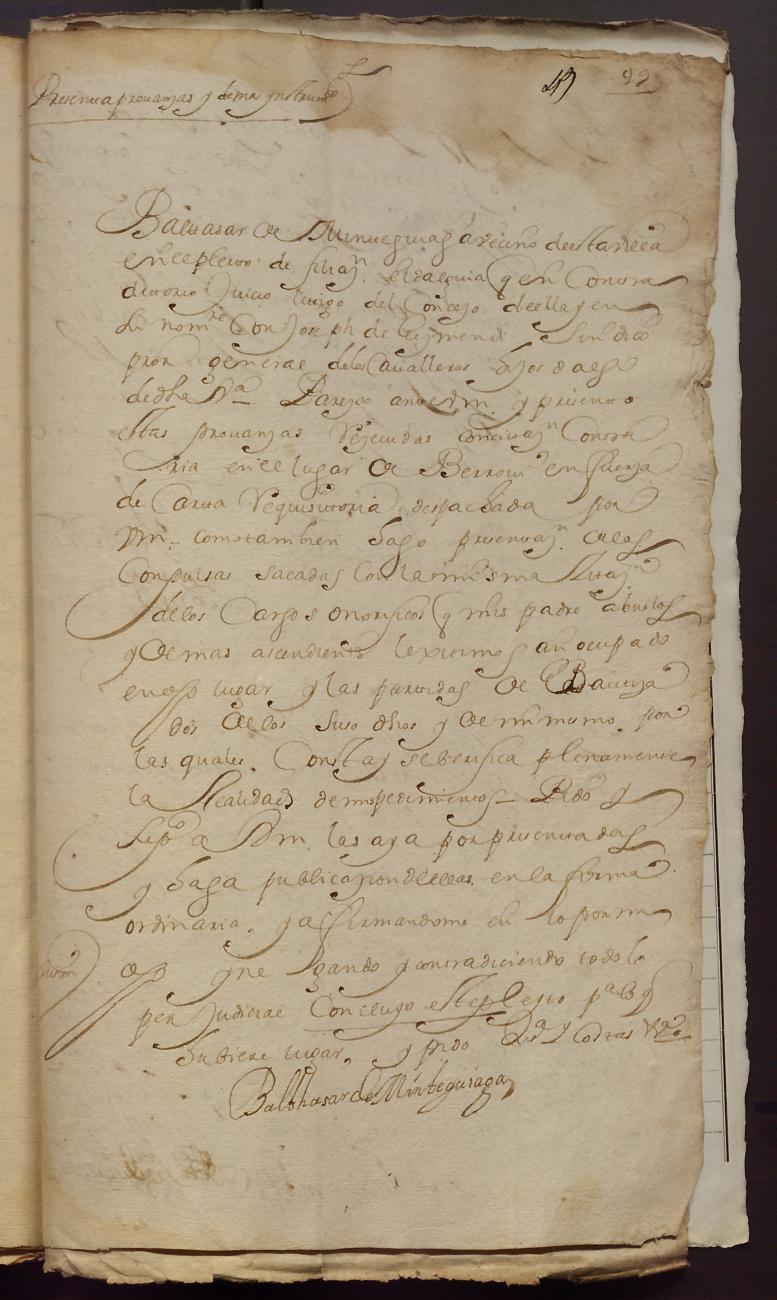 Presenta prouanzas y demas ynstrumtos
49 99
Baltasar de Minteguiaga vecino de esta villa
en el pleito de filiazn. Hidalguia q en Contra
dittorio Juicio litigo del Concejo de ella y en
su nomre Con Joseph de Sindico
pror. general de los Caualleros hijos dalgo
de dha Va. Parezco ante Vm. y presento
estas prouanzas Reciuidas con citazn Contra
ria en el lugar de Berroui en fuerza
de Carta Requisitoria despachada por
Vm. como tambien hago presentazn. de las
Compulsas sacadas Con la misma Citazn
de los Cargos onorificos q mis padre abuelos
y demas ascendientes lexitimos an ocupado
en dho lugar y las partidas de Bautiza
dos de los suso dhos y de mi mismo por
las quales Consta y se berifica plenamente
la Realidad de mi pedimiento Pido y
Supco a Vm. las aya por presentadas
y haga publicazion de ellas en la forma
ordinaria, y afirmandome en lo por mi
dho y negando y contradiciendo todo lo
perjudicial Concluyo este pleyto pa lo q
hubiere lugar, y pido Jusa y Costas &a
Balthasar de Minteguiaga